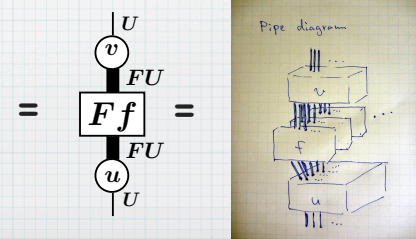 U
v
FU
= Ff =
FU
u
U
Pipe diagram
...
v
...
f
u
...